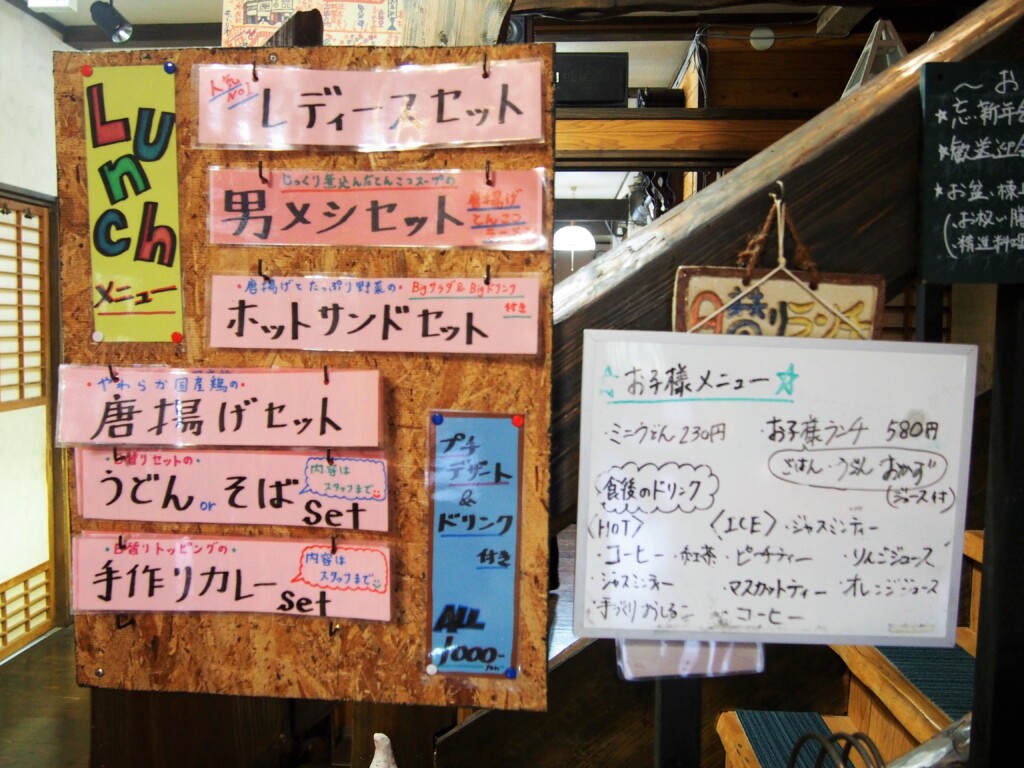 Lunch
メニュー
人気
No1
レディースセット
じっくり煮込んだとんこつスープの
男メシセット
唐揚げ
とんこつ
ラーメン
・唐揚げとたっぷり野菜の
Bigサラダ & Bigドリンク
付き
ホットサンドセット
・やわらか国産鶏の・
唐揚げセット
日替りセットの・
うどん or そば set
内容は
スタッフまで
・日替りトッピングの・
手作りカレー set
内容は
スタッフまで
プチ
デザート
&
ドリンク
付き
ALL
1000-
お子様メニュー☆
・ミニうどん 230円
お子様ランチ 580円
ごはん・うどん おかず
(ジュース付)
食後のドリンク
〈HOT〉
・コーヒー ・紅茶
・ジャスミンティー
手づくりおしるこ
〈ICE〉 ・ジャスミンティー
・ピーチティー ・りんごジュース
・マスカットティー ・オレンジジュース
・コーヒー
日替り ランチ
〜お
★忘.新年会
★歓送迎会
★お盆.様
(.お祝い